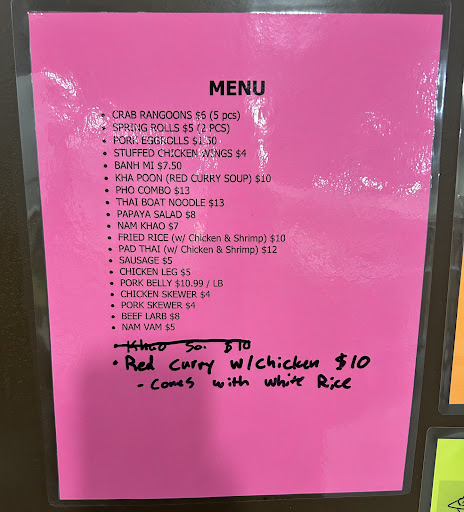 MENU
• CRAB RANGOONS $6 (5 pcs)
• SPRING ROLLS $5 (2 PCS)
• PORK EGGROLLS $1.50
• STUFFED CHICKEN WINGS $4
• BANH MI $7.50
• KHA POON (RED CURRY SOUP) $10
• PHO COMBO $13
• THAI BOAT NOODLE $13
• PAPAYA SALAD $8
• NAM KHAO $7
• FRIED RICE (w/ Chicken & Shrimp) $10
• PAD THAI (w/ Chicken & Shrimp) $12
• SAUSAGE $5
• CHICKEN LEG $5
• PORK BELLY $10.99 / LB
• CHICKEN SKEWER $4
• PORK SKEWER $4
• BEEF LARB $8
• NAM VAM $5
• Khao Soi $10
• Red Curry w/chicken $10
- Comes with white Rice